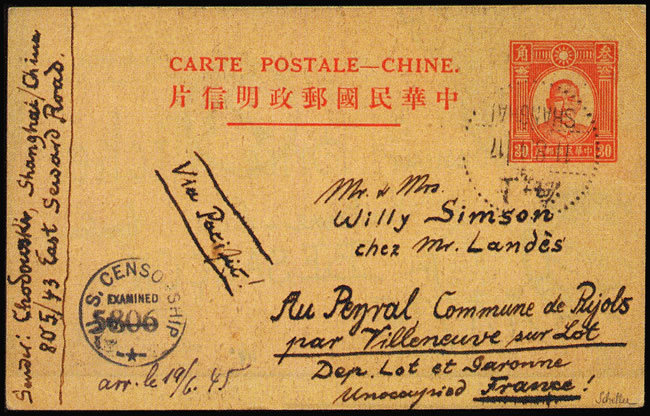 CARTE POSTALE—CHINE.
片信明政郵國民華中
角 叁
30 中華民國郵政 30
SHANGHAI
17
Via Pacific!
Mr. & Mrs.
Willy Simson
chez Mr. Landès
Au Peyral Commune de Pujols
par Villeneuve sur Lot
Dep. Lot et Garonne
Unoccupied France!
Sender: Chodowski, Shanghai/China
805/43 East Seward Road.
S. CENSORSHIP
EXAMINED
5806
arr. le 19/6. 45
Scheller